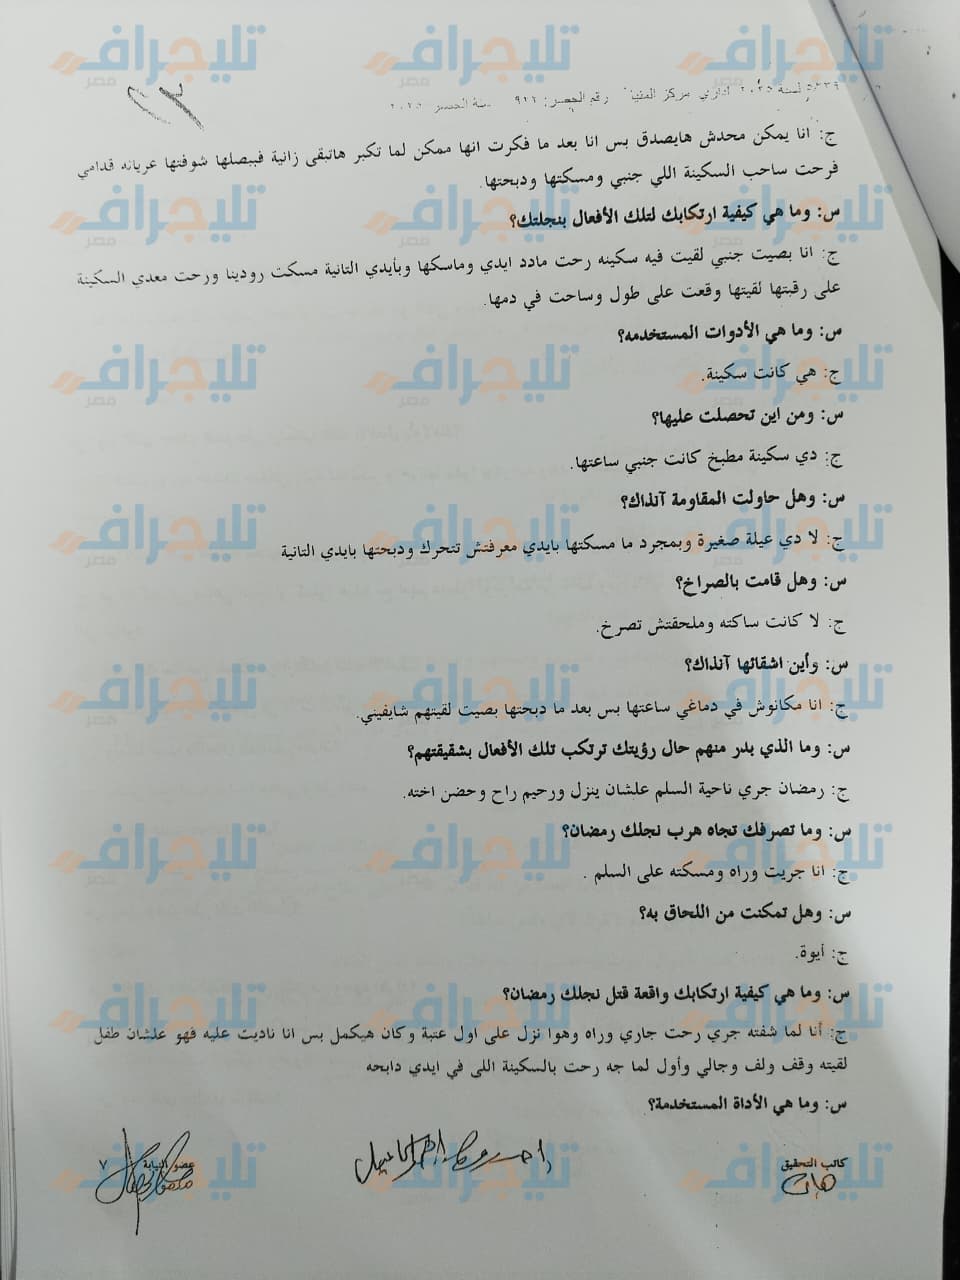 لسنة ٢٠٢٥ اداري مركز المنيا رقم الحصر: ٩٢٢ سنة الحصر ٢٠٢٥
ج: انا يمكن محدش هايصدق بس انا بعد ما فكرت انها ممكن لما تكبر هاتبقى زانية فببصلها شوفتها عريانه قدامي
فرحت ساحب السكينة اللي جنبي ومسكتها ودبحتها.
س: وما هي كيفية ارتكابك لتلك الأفعال بنجلتك؟
ج: انا بصيت جنبي لقيت فيه سكينه رحت مادد ايدي وماسكها وبأيدي التانية مسكت رودينا ورحت معدي السكينة
على رقبتها لقيتها وقعت على طول وساحت في دمها.
س: وما هي الأدوات المستخدمه؟
ج: هي كانت سكينة.
س: ومن اين تحصلت عليها؟
ج: دي سكينة مطبخ كانت جنبي ساعتها.
س: وهل حاولت المقاومة آنذاك؟
ج: لا دي عيلة صغيرة وبمجرد ما مسكتها بايدي معرفتش تتحرك ودبحتها بايدي التانية
س: وهل قامت بالصراخ؟
ج: لا كانت ساكته وملحقتش تصرخ.
س: وأين اشقائها آنذاك؟
ج: انا مكانوش في دماغي ساعتها بس بعد ما دبحتها بصيت لقيتهم شايفيني.
س: وما الذي بدر منهم حال رؤيتك ترتكب تلك الأفعال بشقيقتهم؟
ج: رمضان جري ناحية السلم علشان ينزل ورحيم راح وحضن اخته.
س: وما تصرفك تجاه هرب نجلك رمضان؟
ج: انا جريت وراه ومسكته على السلم .
س: وهل تمكنت من اللحاق به؟
ج: أيوة.
س: وما هي كيفية ارتكابك واقعة قتل نجلك رمضان؟
ج: أنا لما شفته جري رحت جاري وراه وهوا نزل على اول عتبة وكان هيكمل بس انا ناديت عليه فهو علشان طفل
لقيته وقف ولف وجالي وأول لما جه رحت بالسكينة اللى في ايدي دابحه
س: وما هي الأداة المستخدمة؟
كاتب التحقيق
عضو النيابة ٧
تليجراف مصر